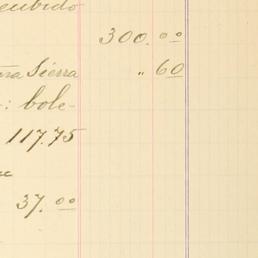 recibido
300.00
Sierra
" 60
: bole-
117.75
37.00